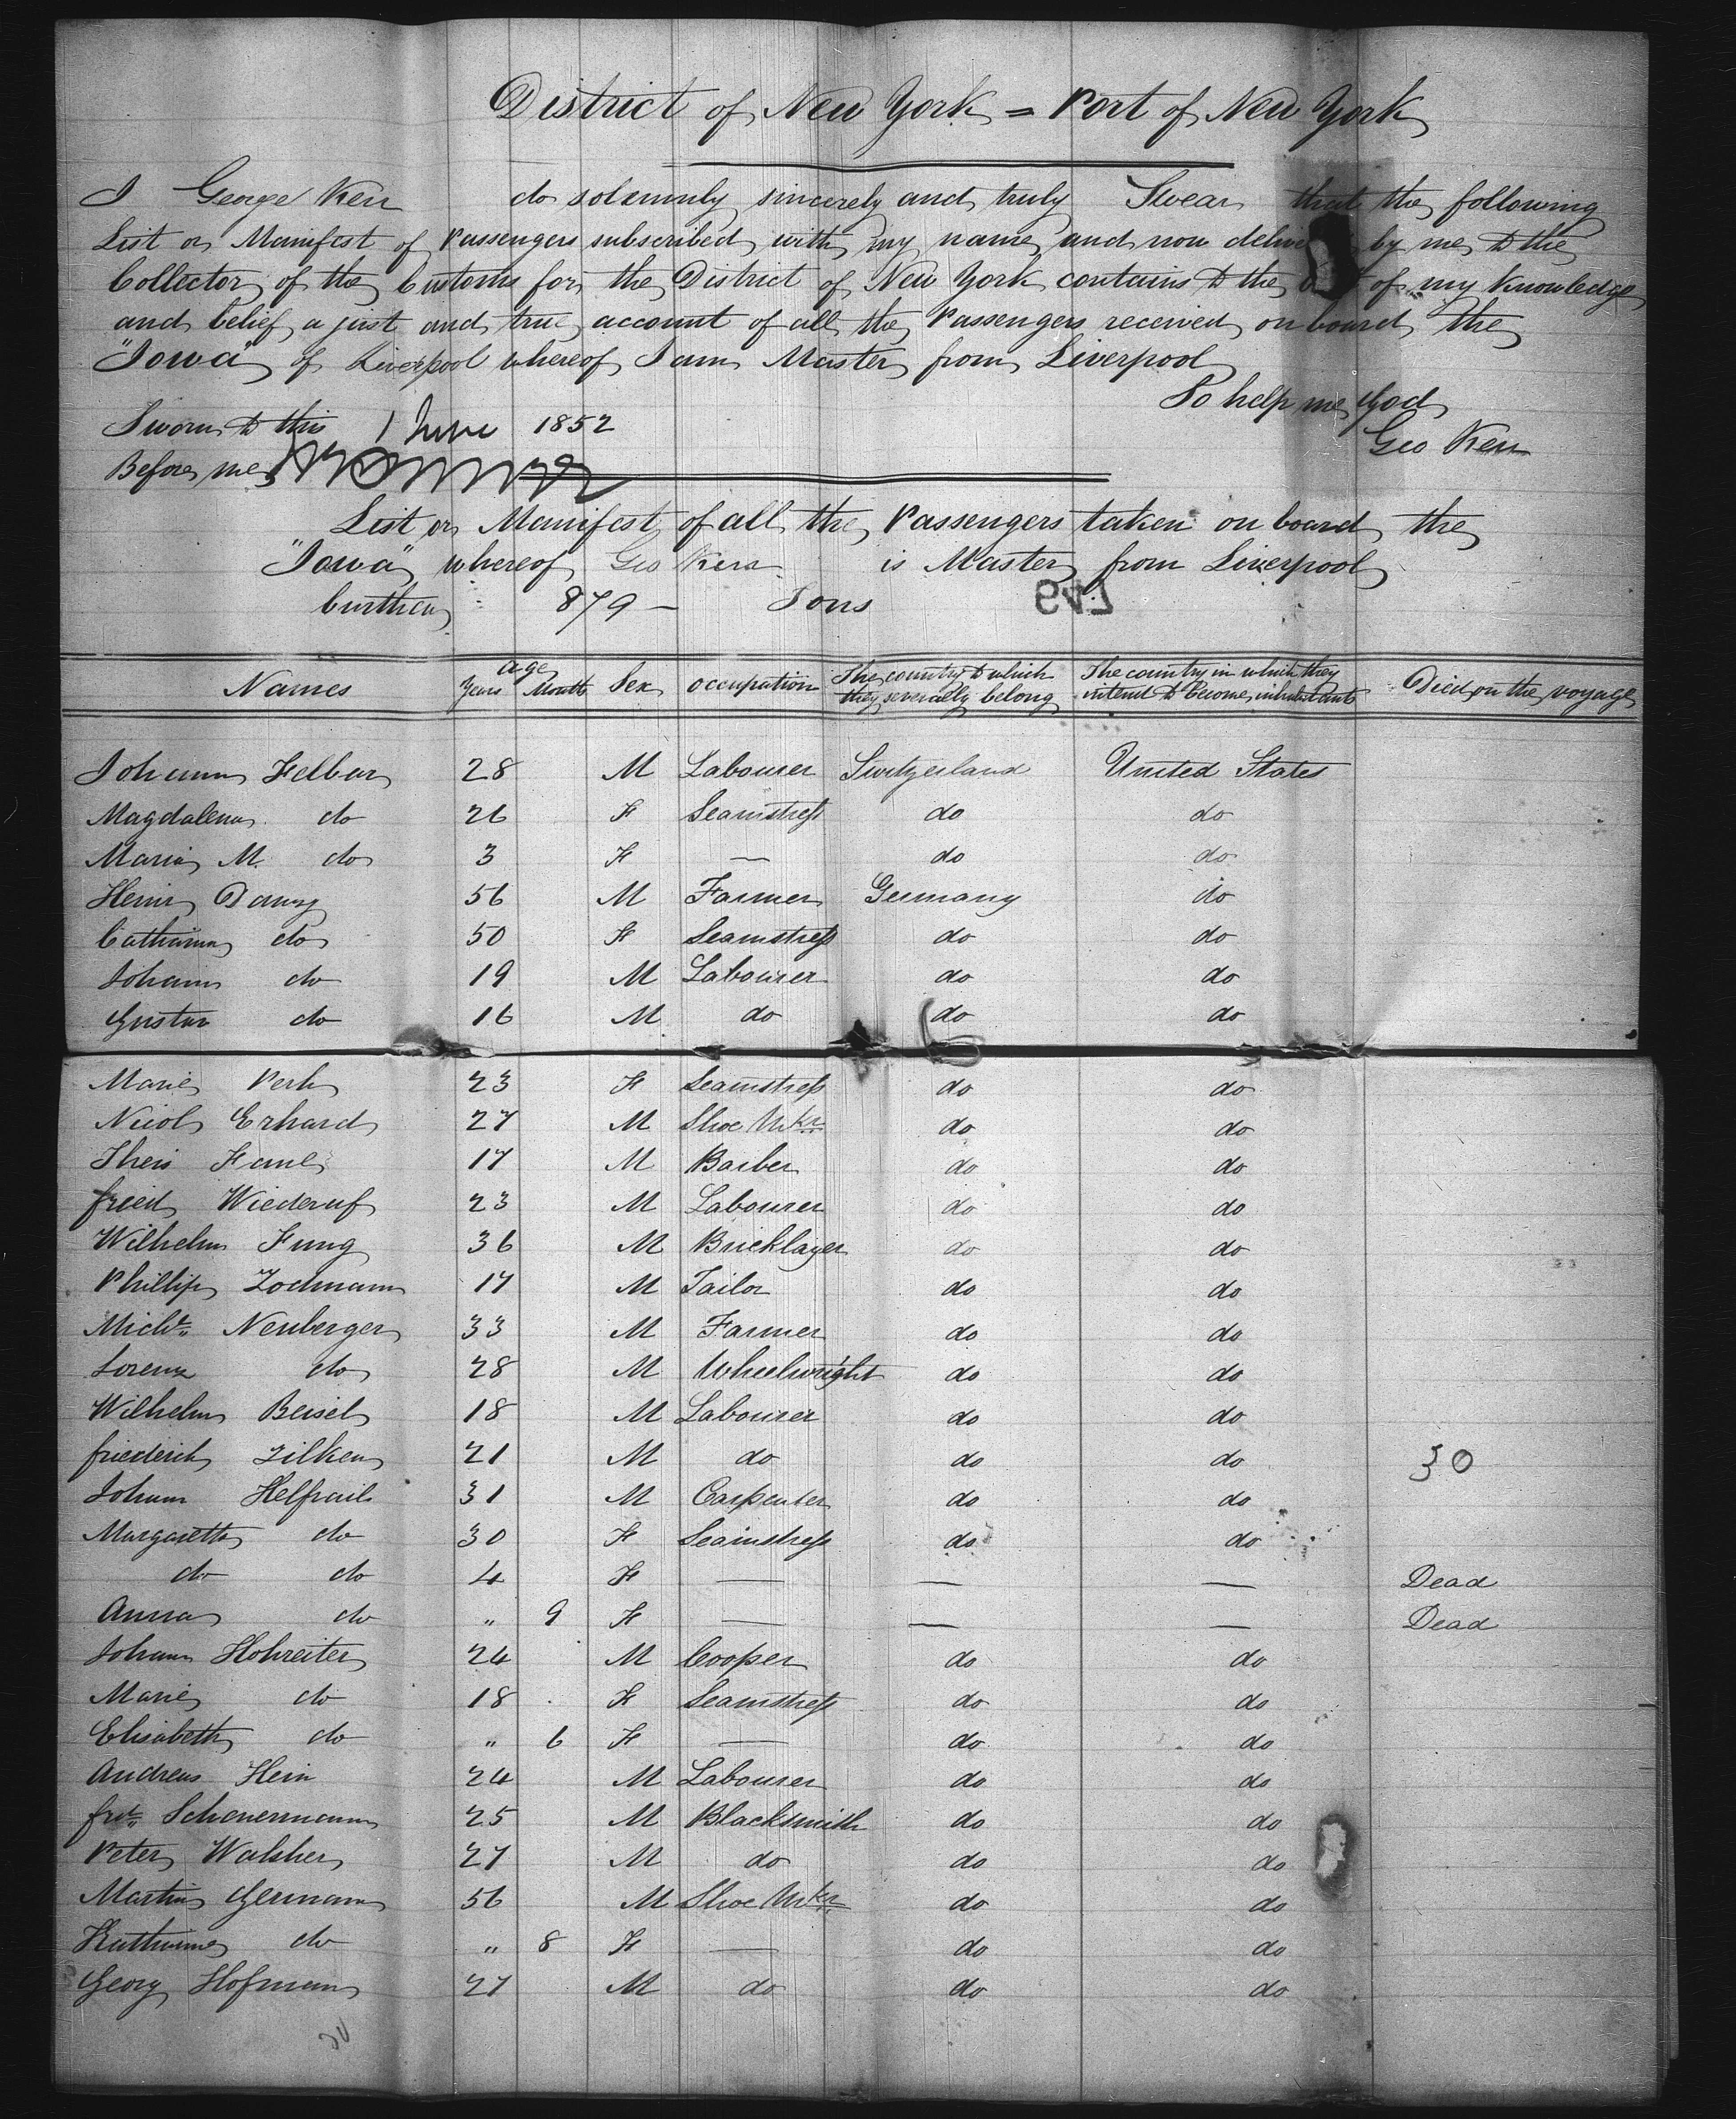 District of New York = Port of New York
I George Kerr do solemnly sincerely and truly Swear that the following
List or Manifest of Passengers subscribed with my name and now delive by me to the
Collector of the Customs for the District of New York contains to the of my knowledge
and belief a just and true account of all the Passengers received on board the
"Iowa" of Liverpool whereof I am Master from Liverpool
So help me God
Sworn to this 1 June 1852
Geo Kerr
Before me
List or Manifest of all the Passengers taken on board the
"Iowa" whereof Geo Kerr is Master from Liverpool
burthen 879 - Tons
Names Age Years Month Sex occupation The country to which they severally belong The country in which they intend to become inhabitants Died on the voyage
Johann Felbar 28 M Labourer Switzerland United States
Magdalena do 26 F Seamstress do do
Maria M. do 3 F — do do
Heinr Dawg 56 M Farmer Germany do
Catharina do 50 F Seamstress do do
Johann do 19 M Labourer do do
Gustav do 16 M do do do
Marie Perh 23 F Seamstress do do
Nicol Erhard 27 M Shoe Mkr do do
Theis Faul 17 M Barber do do
fried Wiederuf 23 M Labourer do do
Wilhelm Fung 36 M Bricklayer do do
Phillip Zochmann 17 M Tailor do do
Michl Neuberger 33 M Farmer do do
Lorenz do 28 M Wheelwright do do
Wilhelm Beisel 18 M Labourer do do
friederich Zilken 21 M do do do 30
Johann Helfrail 31 M Carpenter do do
Margaretta do 30 F Seamstress do do
do do 4 F — — — Dead
Anna do " 9 F — — — Dead
Johann Hohreiter 24 M Cooper do do
Marie do 18 F Seamstress do do
Elisabeth do " 6 F — do do
Andreas Hein 24 M Labourer do do
frd Scheuermann 25 M Blacksmith do do
Peter Walsher 27 M do do do
Martin Germann 56 M Shoe Mkr do do
Katharine do " 8 F — do do
Georg Hofmann 27 M do do do